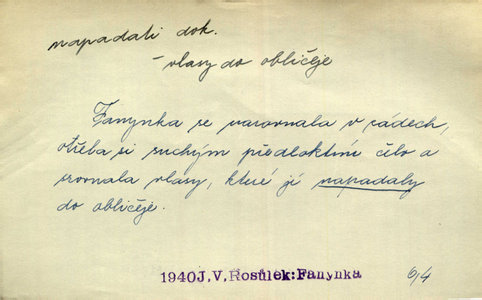 napadati dok.
– vlasy do obličeje
Fanynka se narovnala v zádech,
otřela si suchým předloktím čelo a
srovnala vlasy, které jí napadaly
do obličeje.
1940J,V,Rosůlek:Fanynka
6/4